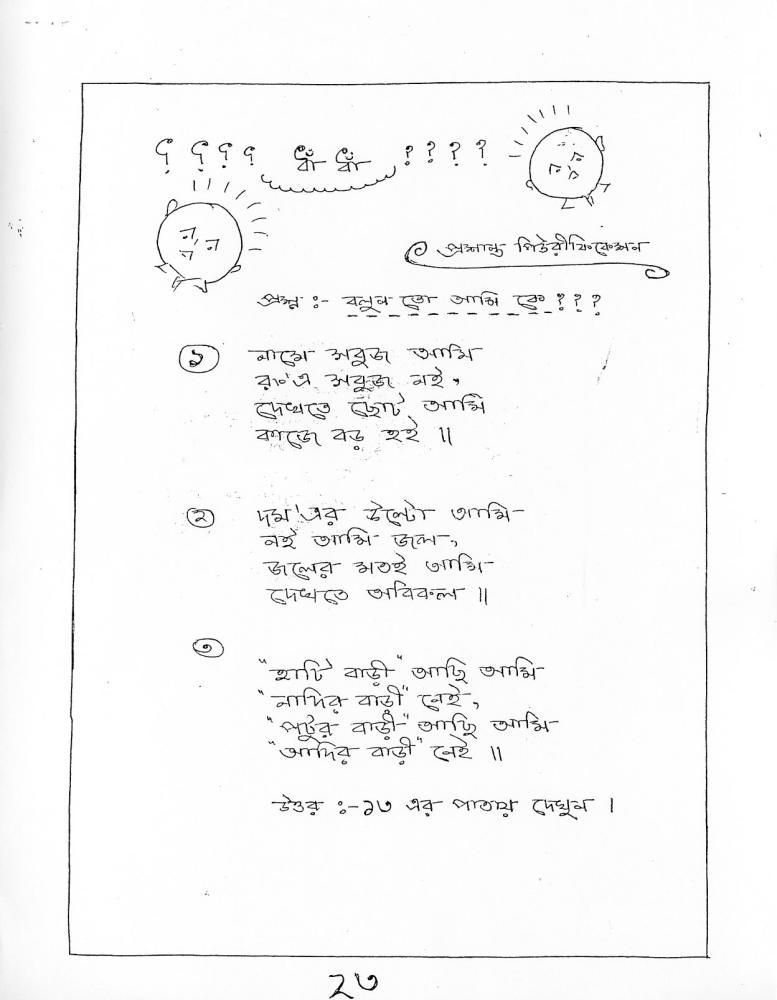 ? ? ? ? ধাঁ ধাঁ ? ? ? ?
প্রশান্ত পিউরীফিকেশন
প্রশ্ন :- বলুন তো আমি কে ? ? ?
১ নামে সবুজ আমি
রং'এ সবুজ নই,
দেখতে ছোট আমি
কাজে বড় হই ॥
২ দম'এর উল্টো আমি
নই আমি জল,
জলের মতই আমি
দেখতে অবিকল ॥
৩
"হাটি বাড়ী" আছি আমি
"নাদির বাড়ী" নেই,
"পটুর বাড়ী" আছি আমি
"আদির বাড়ী" নেই ॥
উত্তর :- ১৩ এর পাতায় দেখুন ।
২৩